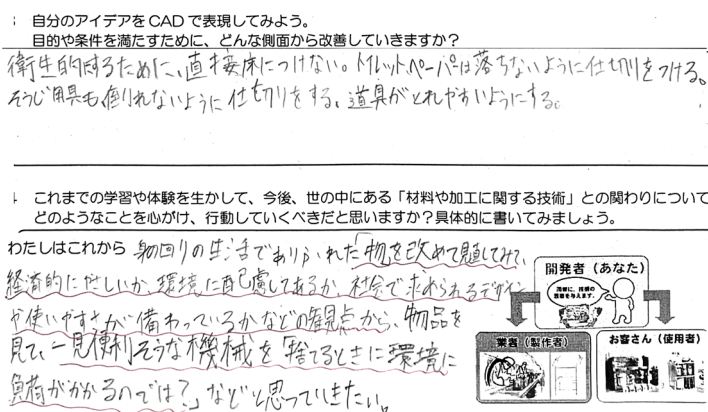 自分のアイデアをCADで表現してみよう。
目的や条件を満たすために、どんな側面から改善していきますか？
衛生的にするために、直接床につけない。トイレットペーパーは落ちないように仕切りをつける。
そうじ用具も倒れないように仕切りをする。道具がとれやすいようにする。
これまでの学習や体験を生かして、今後、世の中にある「材料や加工に関する技術」との関わりについて
どのようなことを心がけ、行動していくべきだと思いますか？具体的に書いてみましょう。
わたしはこれから 身の回りの生活でありふれた「物」を改めて見てみて、
経済的に 環境に配慮してあるか、社会で求められるデザイン
や使いやすさが備わっているかなどの観点から、物品を
見て、一見便利そうな機械を「捨てるときに環境に
負荷がかかるのでは？」などと思っていきたい。
開発者（あなた）
業者（製作者）
お客さん（使用者）